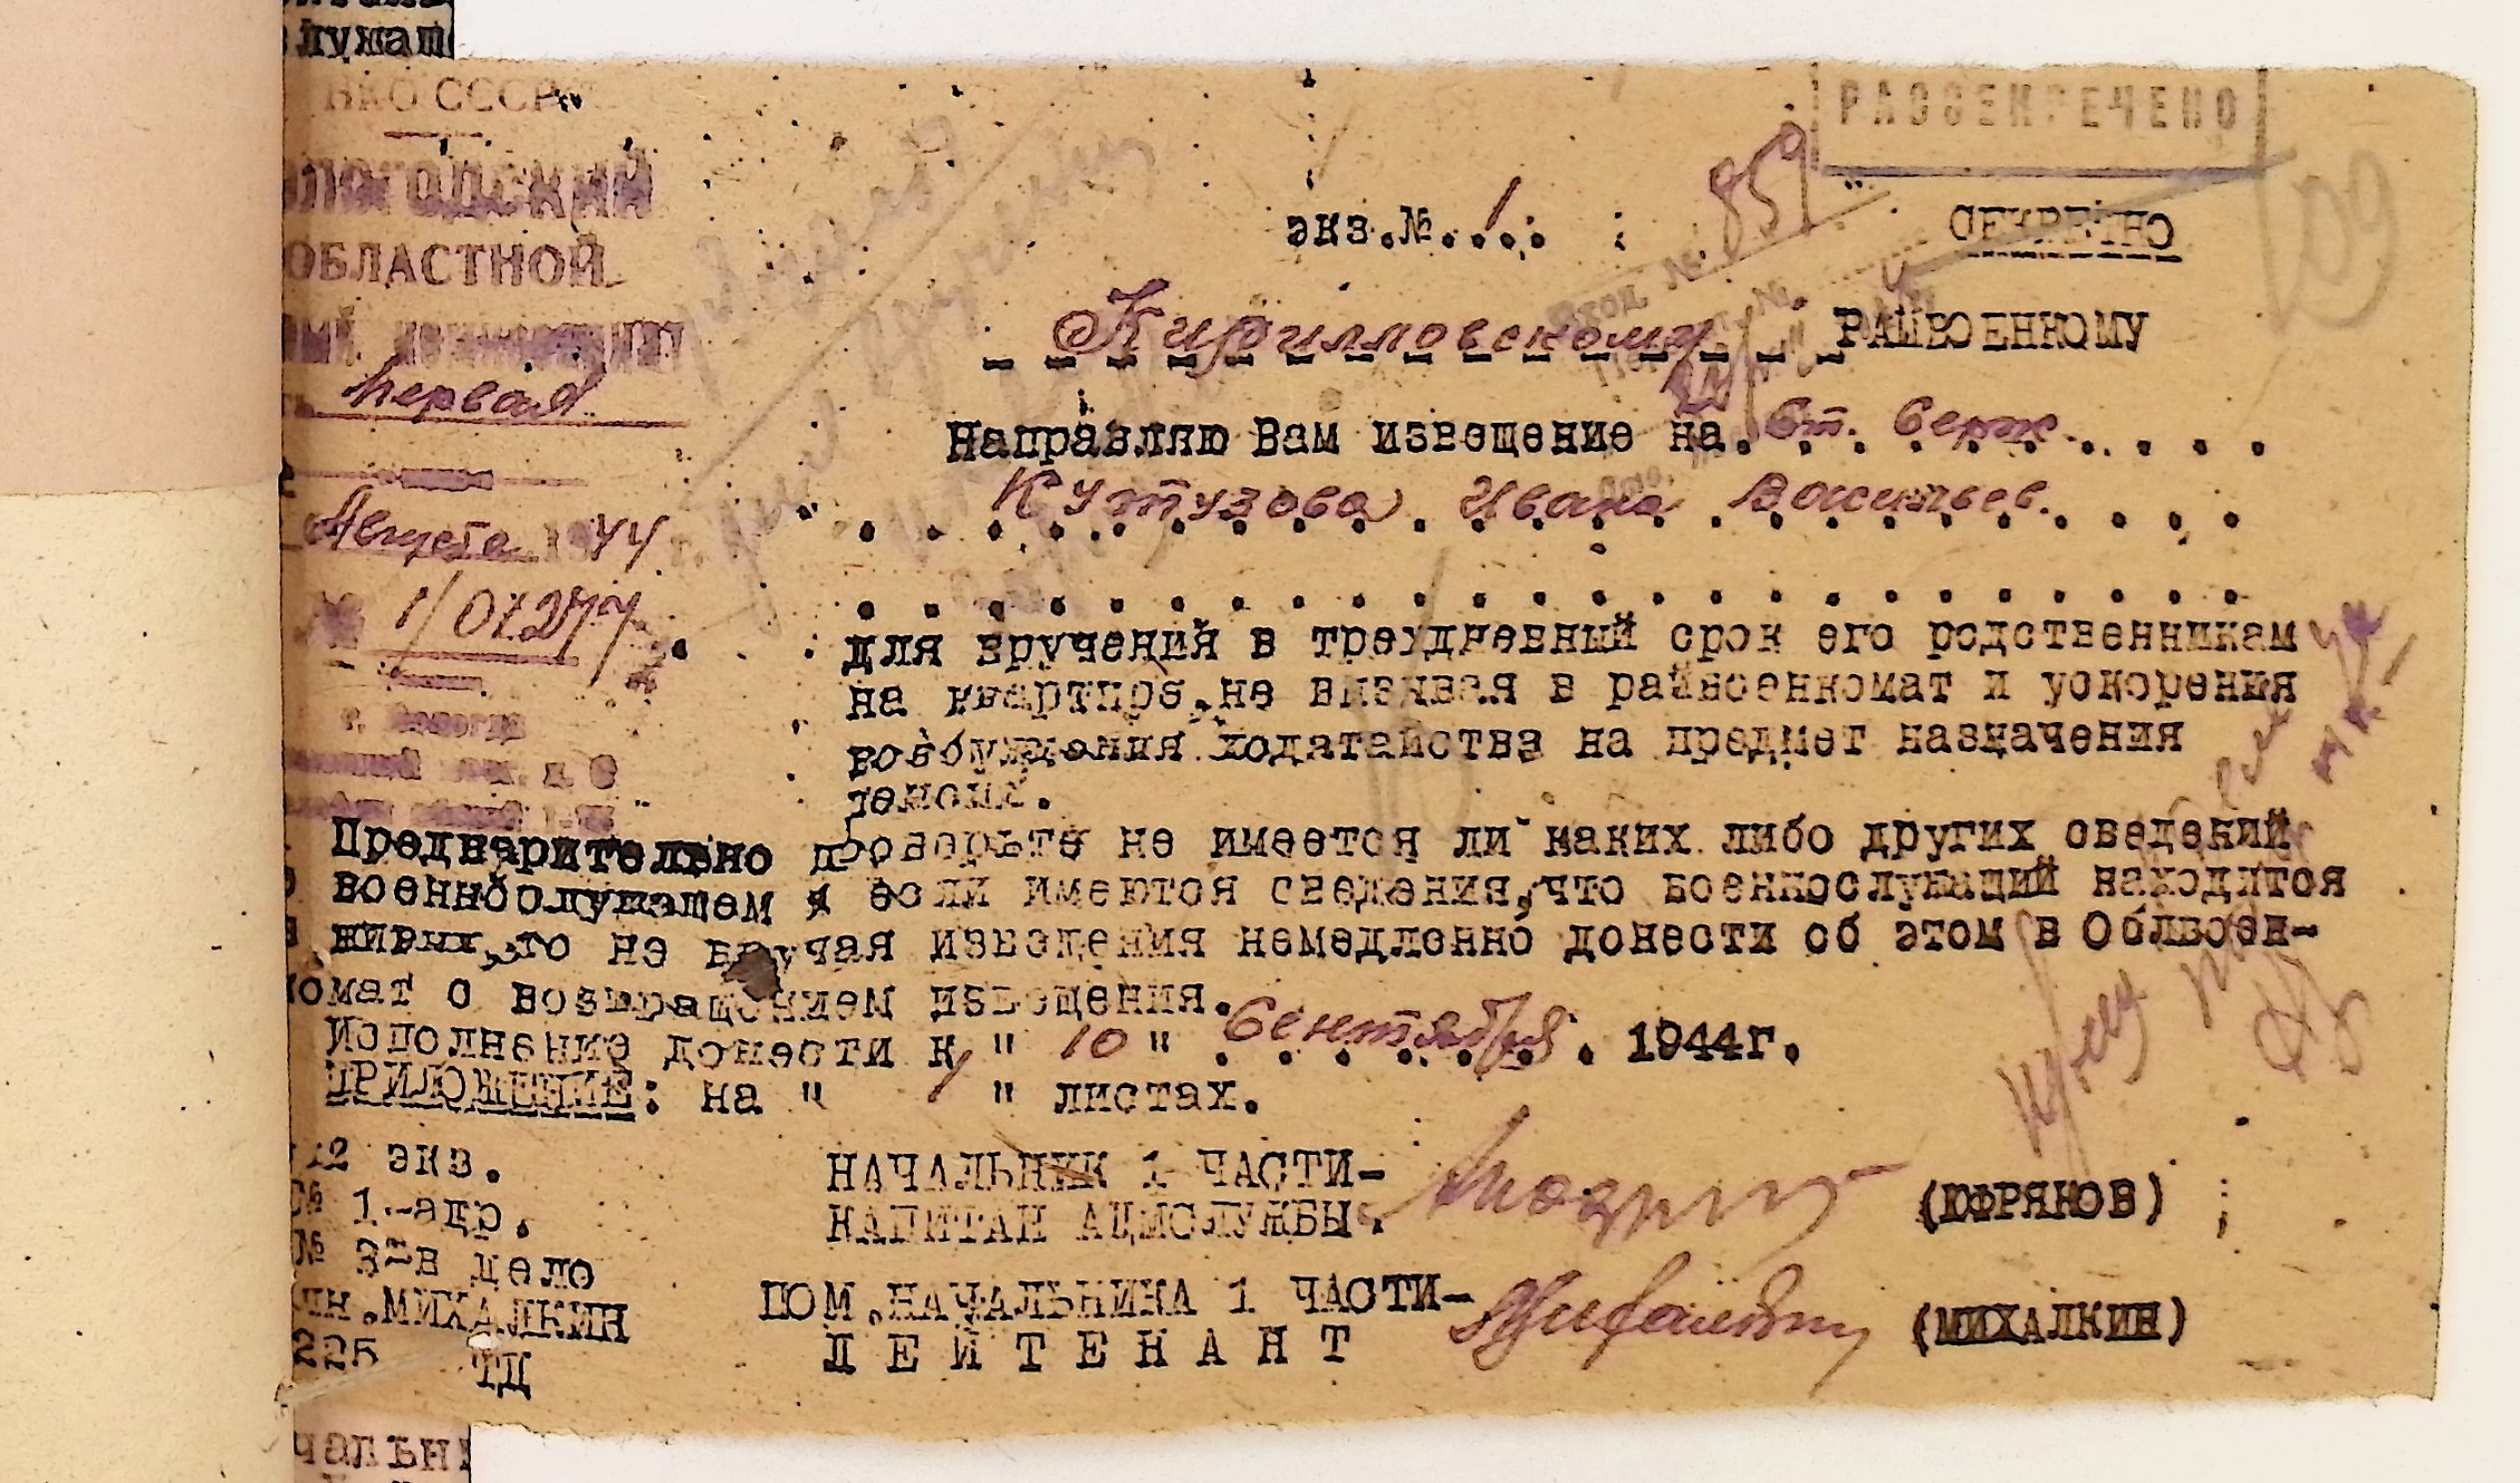 лужащ
НКО СССР
РАССЕКРЕЧЕНО
ОЛОГОДСКИЙ
ОБЛАСТНОЙ
первая
Августа 1944 г.
№ 1/01277
г. Вологда
экз.№ 1
859
СЕКРЕТНО
109
Вход №
Кирилловскому РАЙВОЕНКОМУ
Направляю Вам извещение на Ст. Серж.
Кутузова Ивана Васильев.
для вручения в трехдневный срок его родственникам
на квартире, не вызывая в райвоенкомат и ускорения
возбуждения ходатайства на предмет назначения
Предварительно проверьте не имеется ли каких либо других сведений
о военнослужащем и если имеются сведения, что военнослужащий находится
в живых, то не вручая извещения немедленно донести об этом в Облвоен-
комат с возвращением извещения.
Исполнение донести к " 10 " Сентября . 1944г.
ПРИЛОЖЕНИЕ: на " 1 " листах.
2 экз.
№ 1-адр.
№ 2-в дело
МИХАЛКИН
225
ТД
НАЧАЛЬНИК 1 ЧАСТИ-
КАПИТАН АДМСЛУЖБЫ
(ЮФРЯКОВ)
ПОМ.НАЧАЛЬНИКА 1 ЧАСТИ-
ЛЕЙТЕНАНТ
(МИХАЛКИН)
чальн